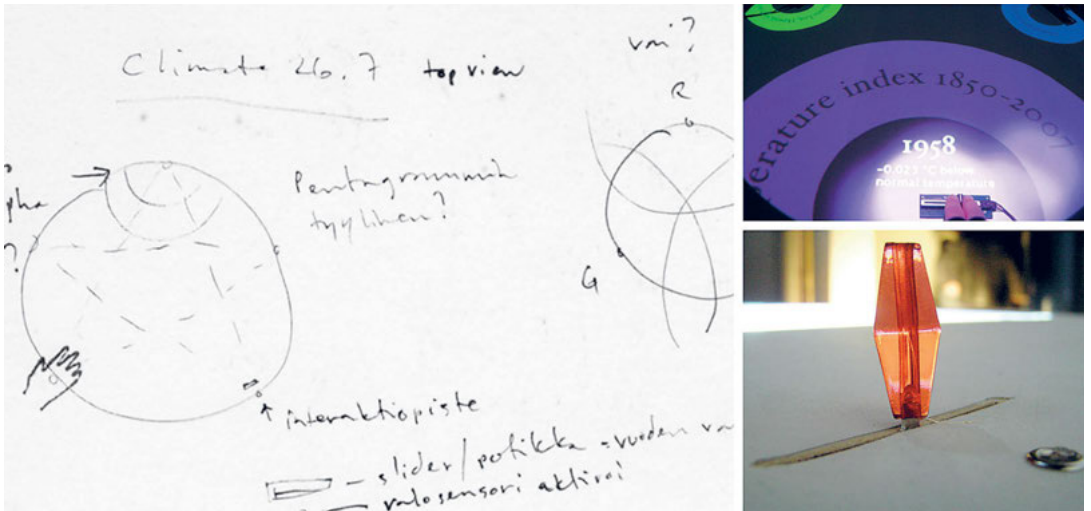 Climate 26.7 top view
vai?
R
pha
?
Pentagrammin
tyylinen?
G
↑ interaktiopiste
– slider/potikka = vuoden va
valosensori aktivoi
erature index 1850-2007
1958
-0.023 °C below
normal temperature